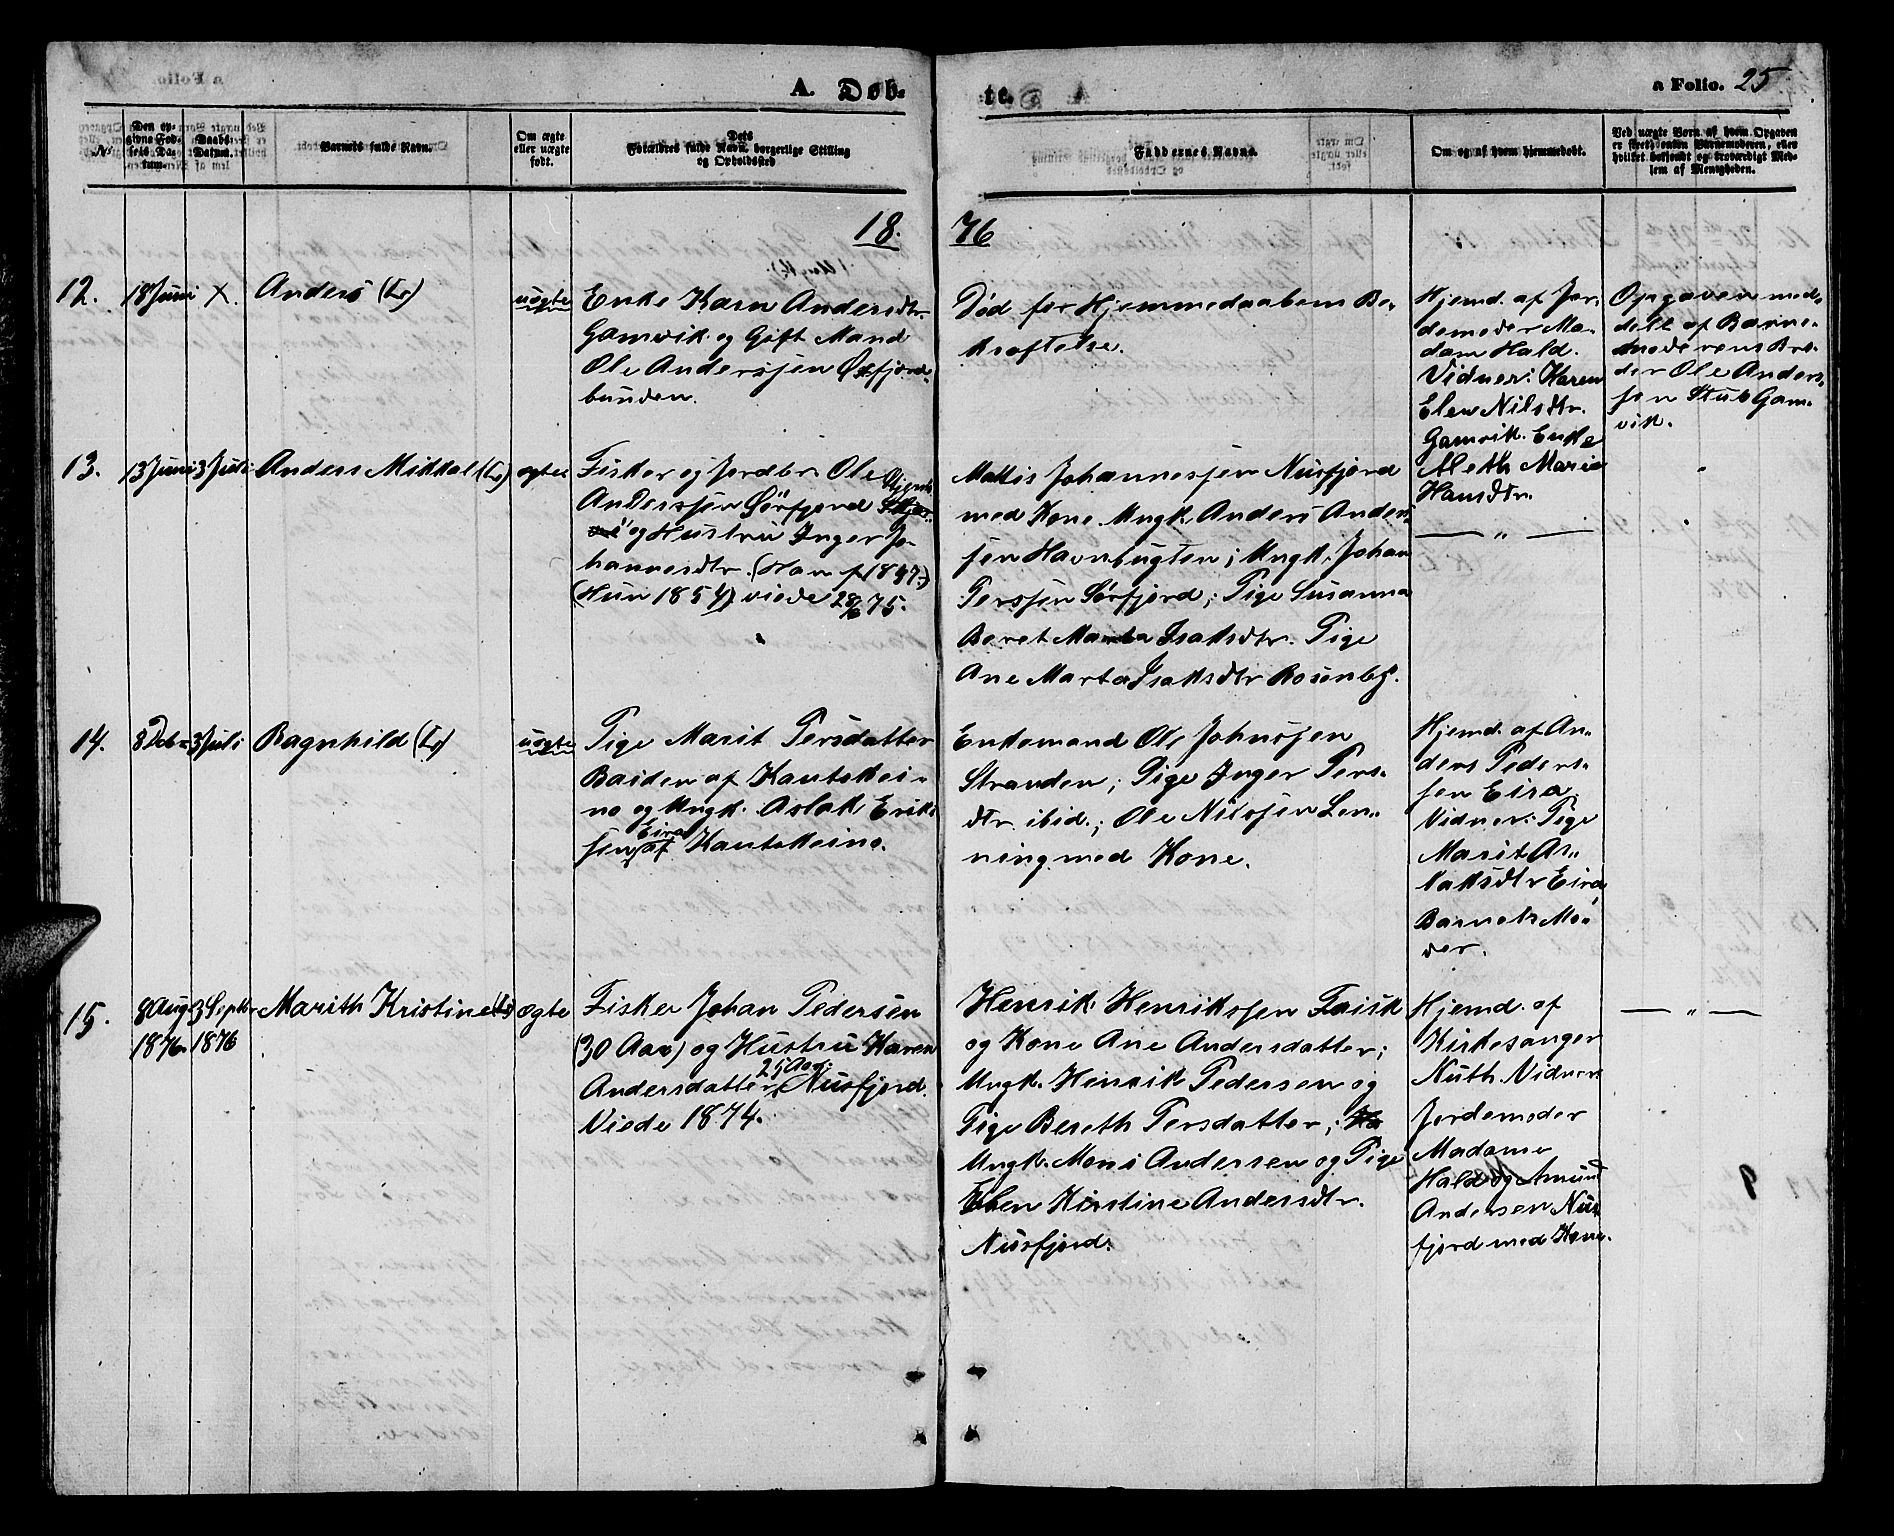 A. Døb-
te.
a Folio. 25
No.
Den op-
givne Fød-
sels Da-
tum.
Daabs-
Datum.
Barnets fulde Navn.
Om ægte
eller uægte
født.
Dets
Forældres fulde Navn, borgerlige Stilling
og Opholdssted
Faddernes Navne.
Om og af hvem hjemmedøbt.
Ved uægte Børn af hvem Opgaven
er skeet, enten Barnemoderen, eller
hvilket bosiddende og troværdigt Med-
lem af Menigheden.
18.
76
12.
18 Juni
X.
Anders (Lr)
uægte
(Ungk.)
Enke Karn Andersdtr.
Gamvik og Gift Mand
Ole Anderssen Øxfjord-
bunden.
Død før Hjemmedaabens Be-
kræftelse.
Hjemd. af Jor-
demoder Ma-
dam Hald.
Vidner: Karen
Elen Nilsdtr.
Gamvik. Enke
Aleth Maria
Hansdtr.
Opgaven med-
delt af Barne-
moderens Bro-
der Ole Anders-
sen Stub Gam-
vik.
13.
13 Juni
3 Juli
Anders Mikkal (Lr)
ægte
Fisker og Jordbr. Ole
Andersen Sørfjord
og Hustru Inger Jo-
hannesdtr. (Han f 1847.)
(Hun 1854) viede 28/6 75.
Mattis Johannessen Nusfjord
med Kone. Ungk. Anders Anders-
sen Havnbugten; Ungk. Johan
Perssen Sørfjord; Pige Susanna
Beret Marta Isaksdtr. Pige
Ane Marta Isaksdtr Rosenbg.
— " —
14.
8 Feb
3 Juli
Ragnhild (Lr)
uægte
Pige Marit Persdatter
Baiden af Kautokei-
no og Ungk. Aslak Erik-
sen Eira af Kautokeino.
Enkemand Ole Johnsen
Stranden; Pige Inger Pers-
dtr. ibid.; Ole Nilssen Len-
ning med Kone.
Hjemd. af An-
ders Peders-
sen Eira
Vidner: Pige
Marit As-
laksdtr Eira
Barnets Mo-
der.
15.
8 Aug
1876.
3 Septbr
1876
Marith Kristine (Lr)
ægte
Fisker Johan Pedersen
(30 Aar) og Hustru Karen
Andersdatter, 25 Aar. Nusfjord.
Viede 1874.
Henrik Henrikssen Faisk
og Kone Ane Andersdatter;
Ungk. Henrik Pedersen og
Pige Bereth Persdatter;
Ungk. Mons Andersen og Pige
Elen Kirstine Andersdtr.
Nusfjord.
Hjemd. af
Kirkesanger
Nuth. Vidner
Jordemoder
Madame
Hald og Amund
Andersen Nus-
fjord med Kone.
— " —